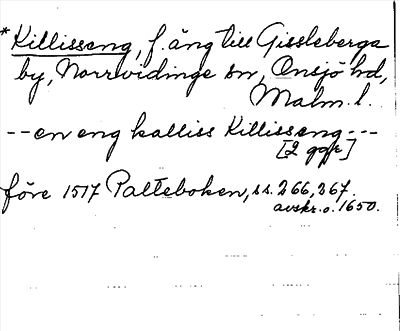 *Killisseng, f. äng till Gissleberga
by, Norrvidinge sn, Onsjö hd,
Malm. l.
-- en eng kalliss Killisseng ---
[2 ggr]
före 1517 Palteboken, ss. 266, 267.
avskr. o. 1650.